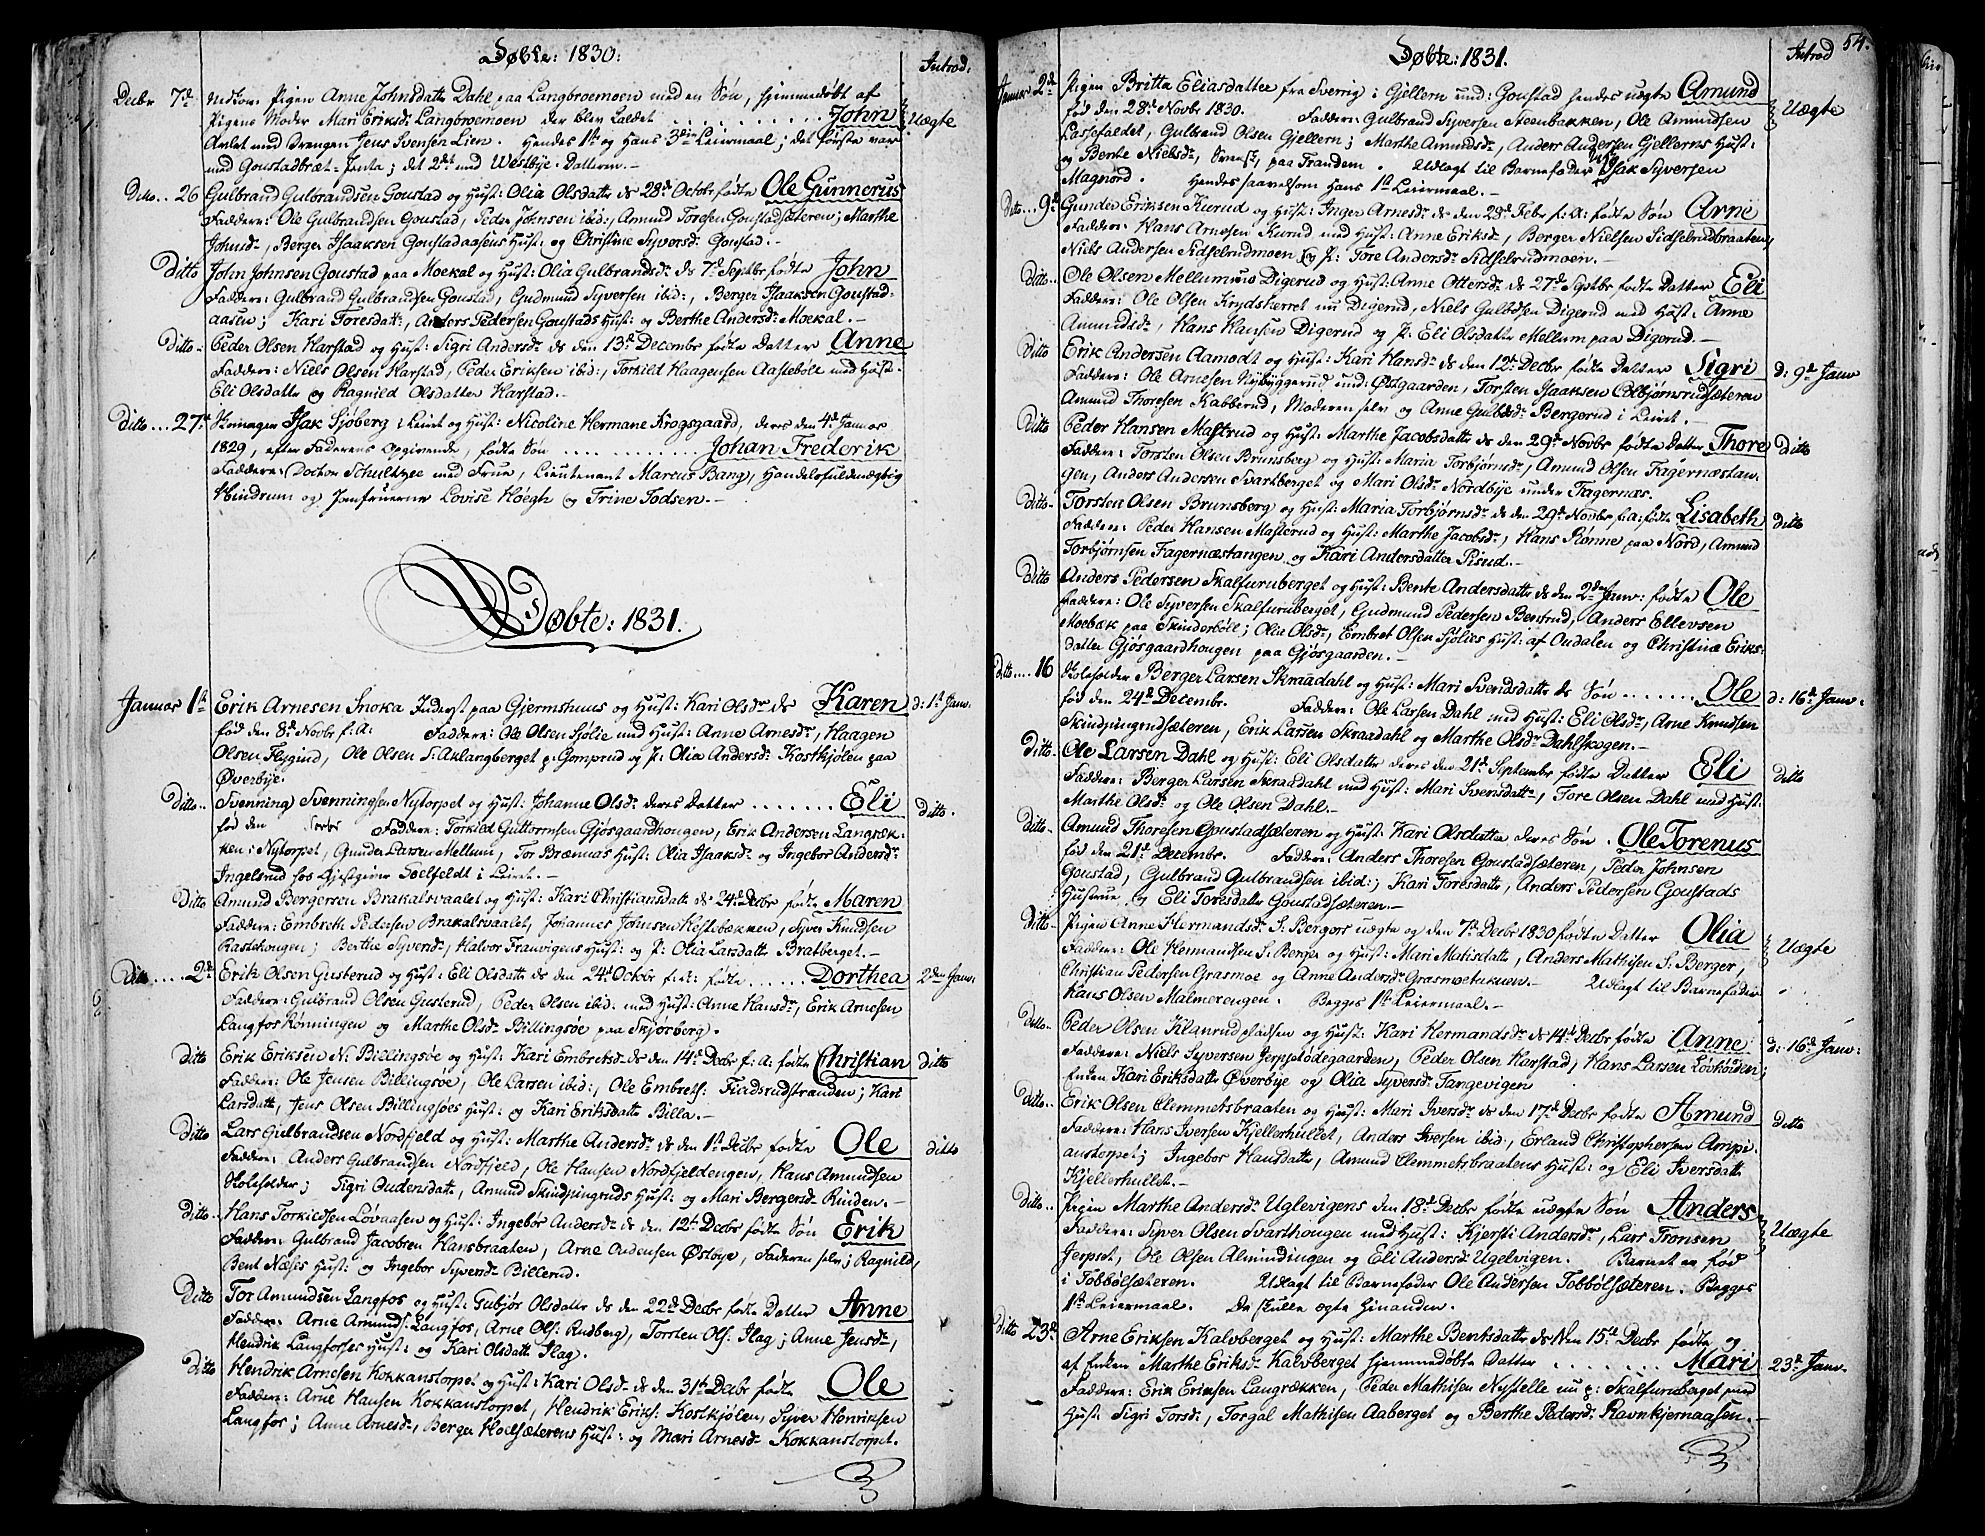 Døbte: 1830.
Introd:
Decbr 7de Pigen Anne Johnsdatter Dahl paa Langbroemoen med en Søn, hjemmedøbt af
Pigens Moder Mari Eriksdr Langbroemoen der blev kaldet John Uægte
Avlet med Drengen Jens Svensen Lien. Hendes 1ste og Hans 3die Leiermaal; det første var
med Goustadbræt-Jenta; det 2det med Westbye-Datteren.
Ditto 26 Gulbrand Gulbrandsen Goustad og Hust: Olia Olsdattr ds 28de Octobr fødte Ole Gunnerus
Faddere: Ole Gulbrandsen Goustad, Peder Johnsen ibid:, Amund Toresen Goustadsæteren; Marthe
Johnsdr, Berger Isaaksen Goustadaasens Hust: og Christine Syversdr Goustad.
Ditto John Johnsen Goustad paa Moekal og Hust: Olia Gulbrandsdr ds 7de Septbr fødte John
Faddere: Gulbrand Gulbrandsen Goustad, Gudmund Syversen ibid:, Berger Isaaksen Goustad-
aasen; Kari Toresdattr, Anders Pedersen Goustads Hust: og Berthe Andersdr Moekal.
Ditto Peder Olsen Harstad og Hust: Sigri Andersdr ds den 13de Decembr fødte Datter Anne
Faddere: Niels Olsen Harstad, Peder Eriksen ibid:, Torkild Haagensen Aasteböle med Hust:
Eli Olsdattr og Ragnild Olsdatter Harstad.
Ditto 27de Skomager Isak Sjöberg i Leiret og Hust: Nicoline Hermane Krogsgaard, deres den 4de Januar
1829, efter Faderens Opgivende, fødte Søn Johan Frederik
Faddere: Doctor Schultzee med Frue, Lieutenant Marcus Bang, Handelsfuldmægtig
Hindrum og Jomfruerne Lovise Høegh og Trine Todsen.
Døbte: 1831.
Januar 1ste Erik Arnesen Snoka Inderst paa Gjermshuus og Hust: Kari Olsdr ds Karen d: 1ste Janv.
fød den 8de Novbr f: A: Faddere: Ole Olsen Sjölie med Hust: Anne Arnesdr, Haagen
Olsen Flygind, Ole Olsen S: Aklangberget p: Gomprud og P: Olia Andersdr Kostkjölen paa
Øverbye.
Ditto Svenning Svenningsen Nytorpet og Hust: Johanne Olsdr deres Datter Eli ditto.
fød den Faddere: Torkild Guttormsen Gjösgaardhougen, Erik Andersen Langræk-
ken i Nytorpet, Gunder Larsen Mellum, Tor Brænnas Hust: Olia Isaaksdr og Ingebor Andersdr
Ingelsrud hos Gjestgiver Toelfeldt i Leiret.
Ditto Amund Bergersen Brakalsvaalet og Hust: Kari Christiansdattr ds 24de Decbr fødte Maren
Faddere: Embreth Pedersen Brakalsvaalet, Johannes Johnsen Hestebækken, Syver Knudsen
Rastehougen; Berthe Syversdr, Halvor Franvigens Hust: og P: Olia Larsdattr Bratberget.
Ditto 2de Erik Olsen Gusterud og Hust: Eli Olsdattr ds den 24de Octobr f: A: fødte Dorthea 2den Janv.
Faddere: Gulbrand Olsen Gusterud, Peder Olsen ibid: med Hust: Anne Hansdr, Erik Arnesen
Langfos Rönningen og Marthe Olsdr Billingsöe paa Skjorberg.
Ditto Erik Eriksen N: Billingsöe og Hust: Kari Embretsdr ds den 14de Decbr f: A: fødte Christian ditto
Faddere: Ole Jensen Billingsöe, Ole Larsen ibid:, Ole Embretsn Fiadsrudstranden; Kari
Larsdattr, Jens Olsen Billingsöes Hust: og Kari Eriksdattr Billa.
Ditto Lars Gulbrandsen Nordfjeld og Hust: Marthe Andersdr ds den 1ste Decbr fødte Ole ditto
Faddere: Anders Gulbrandsen Nordfjeld, Ole Hansen Nordfjeldengen, Hans Amundsen
Skoleholder; Sigri Oudensdattr, Amund Skindpungruds Hust: og Mari Bergersdr Rinden.
Ditto Hans Torkildsen Lövaasen og Hust: Ingebör Andersdr ds den 12te Decbr fødte Søn Erik
Faddere: Gulbrand Jacobsen Hansbraaten, Arne Oudensen Østbye, Faderen selv; Ragnild,
Bent Næses Hust: og Ingebor Syversdr Billerud.
Ditto Tor Amundsen Langfos og Hust: Gubjör Olsdattr ds den 22de Decbr fødte Datter Anne
Faddere: Arne Amunds: Langfos, Arne Ols: Rudberg, Torsten Ols: Flag; Anne Jensdr,
Hendrik Langfosses Hust: og Kari Olsdattr Flag.
Ditto Hendrik Arnesen Kokkanstorpet og Hust: Kari Olsdr ds den 31te Decbr fødte Ole
Faddere: Arne Hansen Kokkanstorpet, Hendrik Eriks: Kostkjölen, Syver Henriksen
Langfos; Anne Arnesdr, Berger Hoelsæterens Hust: og Mari Arnesdr Kokkanstorpet.
Døbte: 1831.
Introd 54.
Januar 2de Pigen Britta Eliasdatter fra Sverrig i Gjellern und: Goustad hendes uægte Amund Uægte
fød den 28de Novbr 1830. Faddere: Gulbrand Syversen Steenbakken, Ole Amundsen
Lassefaldet, Gulbrand Olsen Gjellern; Marthe Amundsdr, Anders Andersen Gjellerns Hust:
og Berte Nielsdr, Svensk, paa Frandem. Udlagt til Barnefader Isak Syversen
Magnord. Hendes saavelsom Hans 1ste Leiermaal.
Ditto 9de Gunder Eriksen Kurud og Hust: Inger Arnesdr ds den 28de Febr f: A: fødte Søn Arne
Faddere: Hans Arnesen Kurud med Hust: Anne Eriksdr, Berger Nielsen Sidselrudbraaten,
Niels Andersen Sidselrudmoen og P: Tore Andersdr Sidselrudmoen.
Ditto Ole Olsen Mellum nu Digerud og Hust: Anne Ottersdr ds 27de Sptbr fødte Datter Eli
Faddere: Ole Olsen Krydskerret nu Digerud, Niels Gulbdsen Digerud med Hust: Anne
Amundsdr, Hans Hansen Digerud og P: Eli Olsdattr Mellum paa Digerud.
Ditto Erik Andersen Aamodt og Hust: Kari Hansdr ds den 12te Decbr fødte Datter Sigri d: 9de Janv
Faddere: Ole Arnesen Nybyggerud und: Østgaarden, Torsten Isaaksen Colbjörnsrudsæteren
Amund Thoresen Kabberud, Moderen selv og Anne Gulbdsdr Bergerud i Leiret.
Ditto Peder Hansen Mastrud og Hust: Marthe Jacobsdattr ds den 29de Novbr fødte Datter Thore ditto
Faddere: Torsten Olsen Brunsberg og Hust: Maria Torbjörnsdr, Amund Olsen Fagernæstan-
gen, Anders Andersen Svartberget og Mari Olsdr Nordbye under Fagernæs.
Ditto Torsten Olsen Brunsberg og Hust: Maria Torbjörnsdr ds den 29de Novbr f: A: fødte Lisabeth ditto
Faddere: Peder Hansen Masterud og Hust: Marthe Jacobsdr, Hans Rönne paa Nord, Amund
Torbjörnsen Fagernæstangen og Kari Andersdatter Pisud.
Ditto Anders Pedersen Skalfuruberget og Hust: Bente Andersdattr ds den 2den Janv: fødte Ole
Faddere: Ole Syversen Skalfuruberget, Gudmund Pedersen Bentrud, Anders Ellevsen
Moebæk paa Skinderböll; Olia Olsdr, Embret Olsen Sjölies Hust: af Oudalen og Christine Eriks-
datter Gjösgaardhougen paa Gjösgaarden.
Ditto 16 Skoleholder Berger Larsen Skraadahl og Hust: Mari Svendsdattr ds Søn Ole d: 16de Janv:
fød den 24de Decembr. Faddere: Ole Larsen Dahl med Hust: Eli Olsdr, Arne Knudsen
Skindpungrudsæteren, Erik Larsen Skraadahl og Marthe Olsdr Dahlskogen.
Ditto Ole Larsen Dahl og Hust: Eli Olsdattr deres den 21de Septembr fødte Datter Eli ditto
Faddere: Berger Larsen Skraadahl med Hust: Mari Svensdattr, Tore Olsen Dahl med Hust:
Marthe Olsdr og Ole Olsen Dahl.
Ditto Amund Thoresen Goustadsæteren og Hust: Kari Olsdattr deres Søn Ole Torenus
fød den 21de Decembr. Faddere: Anders Thoresen Goustadsæteren, Peder Johnsen
Goustad, Gulbrand Gulbrandsen ibid:; Kari Toresdattr, Anders Pedersen Goustads
Hustrue og Eli Toresdattr Goustadsæteren.
Ditto Pigen Anne Hermandsdr S: Bergers uægte og den 7de Decbr 1830 fødte Datter Olia Uægte
Faddere: Ole Hemmandsen S: Berger og Hust: Mari Matisdattr, Anders Mathisen S: Berger,
Christian Pedersen Grasmoe og Anne Andersdr Grasmoetuknen. Udlagt til Barnefader
Hans Olsen Malmerengen. Begges 1ste Leiermaal.
Ditto Peder Olsen Klanrudpladsen og Hust: Kari Hermandsdr ds 14de Decbr fødte Anne d: 16de Janv:
Faddere: Niels Syversen Jerpsödegaarden, Peder Olsen Harstad, Hans Larsen Lövhöiden;
Enken Kari Eriksdattr Øverbye og Olia Syversdr Tangevigen
Ditto Erik Olsen Clemmetsbraaten og Hust: Mari Iversdr ds den 17de Decbr fødte Amund ditto
Faddere: Hans Iversen Kjellerhullet, Anders Iversen ibid:, Erland Christophersen Ampi-
anstorpet; Ingebor Hansdattr, Amund Clemmetsbraatens Hust: og Eli Iversdattr
Kjellerhullet.
Ditto Pigen Marthe Andersdr Uglevigens den 18de Decbr fødte uægte Søn Anders Uægte
Faddere: Syver Olsen Svarthougen med Hust: Kjersti Andersdr, Lars Tronsen
Jerpset, Ole Olsen Almindingen og Eli Andersdr Ugelvigen. Barnet er fød
i Tobbölsæteren. Udlagt til Barnefader Ole Andersen Tobbölsæteren. Begges
1ste Leiermaal. De skulle ægte hinanden.
Ditto 23de Arne Eriksen Kalvberget og Hust: Marthe Bentsdattr ds den 15de Decbr fødte og
af Enken Marthe Eriksdr Kalvberget hjemmedøbte Datter Mari 23de Janv.
Faddere: Erik Eriksen Langrækken, Peder Mathisen Nystelle nu p: Skalfuruberget med
Hust: Sigri Torsdr, Torgal Mathisen Aaberget og Berthe Pedersdr Ravnkjernaasen.